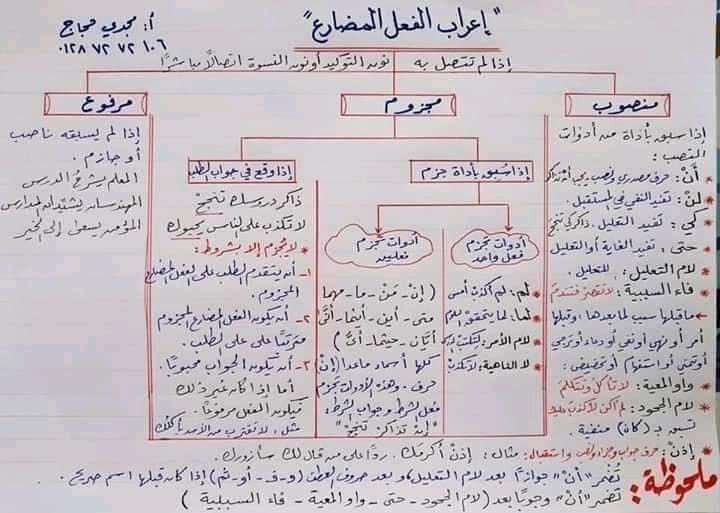 "إعراب الفعل المضارع"
أ: مجدي محاج
٠١٢٨ ٧٢ ٧٢ ١٠٦
إذا لم تتصل به نون التوكيد أو نون النسوة اتصالاً مباشرًا
منصوب
إذا سبق بأداة من أدوات
النصب:
* أنْ: حرف مصدري ونصب يجب أن تذاكر
* لنْ: تفيد النفي في المستقبل.
* كي: تفيد التعليل. ذاكر كي تنجح
* حتى: تفيد الغاية أو التعليل
* لام التعليل: للتعليل.
* فاء السببية: لا تقصر فتندم
← ما قبلها سبب لما بعدها، وقبلها
أمر أو نهي أو نفي أو دعاء أو ترجي
أو تمني أو استفهام أو تحضيض.
* واو المعية: لا تأكل وتتكلم
* لام الجحود: لم أكن لأكذب
تسبق بـ (كان) منفية.
* إذن: حرف جواب وجزاء ونصب واستقبال: مثال: إذنْ أكرمك. ردًّا على من قال لك سأزورك.
مجزوم
إذا سُبق بأداة جزم
أدوات تجزم
فعل واحد
* لم: لم أكذب أمس
* لما: لما يتحقق
* لام الأمر: لتكتب
* لا الناهية: لا تكذب
أدوات تجزم
فعلين
( إنْ - مَنْ - ما - مهما
متى - أين - أينما - أنَّى
أيَّان - حيثما - أيُّ )
كلها أسماء ماعدا (إنْ)
حرف. وهذه الأدوات تجزم
فعل الشرط وجواب الشرط:
"إنْ تذاكرْ تنجحْ"
إذا وقع في جواب الطلب
ذاكر دروسك تنجحْ
لا تكذب على الناس يحبوك
* لا يُجزم إلا بشروط:
١- أن يتقدم الطلب على الفعل المضارع
المجزوم.
٢- أن يكون الفعل المضارع المجزوم
مترتبًا على على الطلب.
٣- أن يكون الجواب محبوبًا.
أما إذا كان غير ذلك
فيكون الفعل مرفوعًا.
مثل: لا تقترب من الأسد يأكلك
مرفوع
إذا لم يسبقه ناصب
أو جازم.
المعلم يشرحُ الدرس
المهندسان يشيدان المدارس
المؤمن يسعى إلى الخير
ملحوظة:
تُضمر "أنْ" جوازًا بعد لام التعليل، وبعد حروف العطف (و - ف - أو - ثم) إذا كان قبلها اسم صريح.
تضمر "أنْ" وجوبًا بعد (لام الجحود - حتى - واو المعية - فاء السببية)